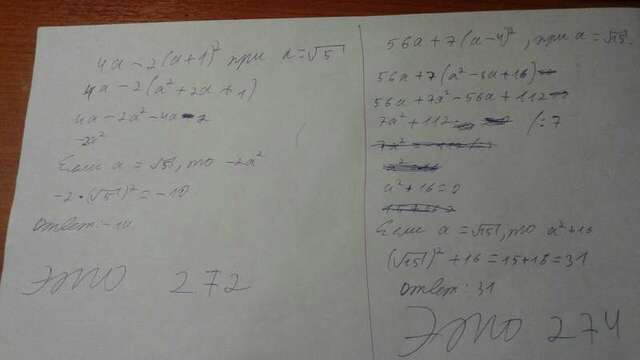 4a - 2(a+1)² при a = √5
4a - 2(a² + 2a + 1)
4a - 2a² - 4a - 2
-2a²
Если a = √5, то -2a²
-2 · (√5)² = -10
Ответ: -10
Это 272
56a + 7(a-4)², при a = √15
56a + 7(a² - 8a + 16)
56a + 7a² - 56a + 112
7a² + 112 /: 7
a² + 16 = 0
Если a = √15, то a² + 16
(√15)² + 16 = 15 + 16 = 31
Ответ: 31
Это 274